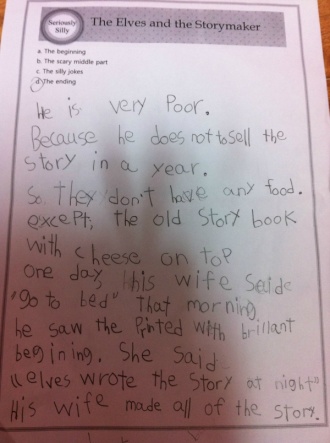 Seriously
Silly
The Elves and the Storymaker
a. The beginning
b. The scary middle part
c. The silly jokes
d. The ending
He is very Poor.
Because he does not to sell the
story in a year.
So. they don't have any food.
except, the old Story book
with cheese on top
one day, his wife Seide
"go to bed" That morning.
he saw the Printed with brillant
begining. She Said
"elves wrote the Story at night"
His wife made all of the story.